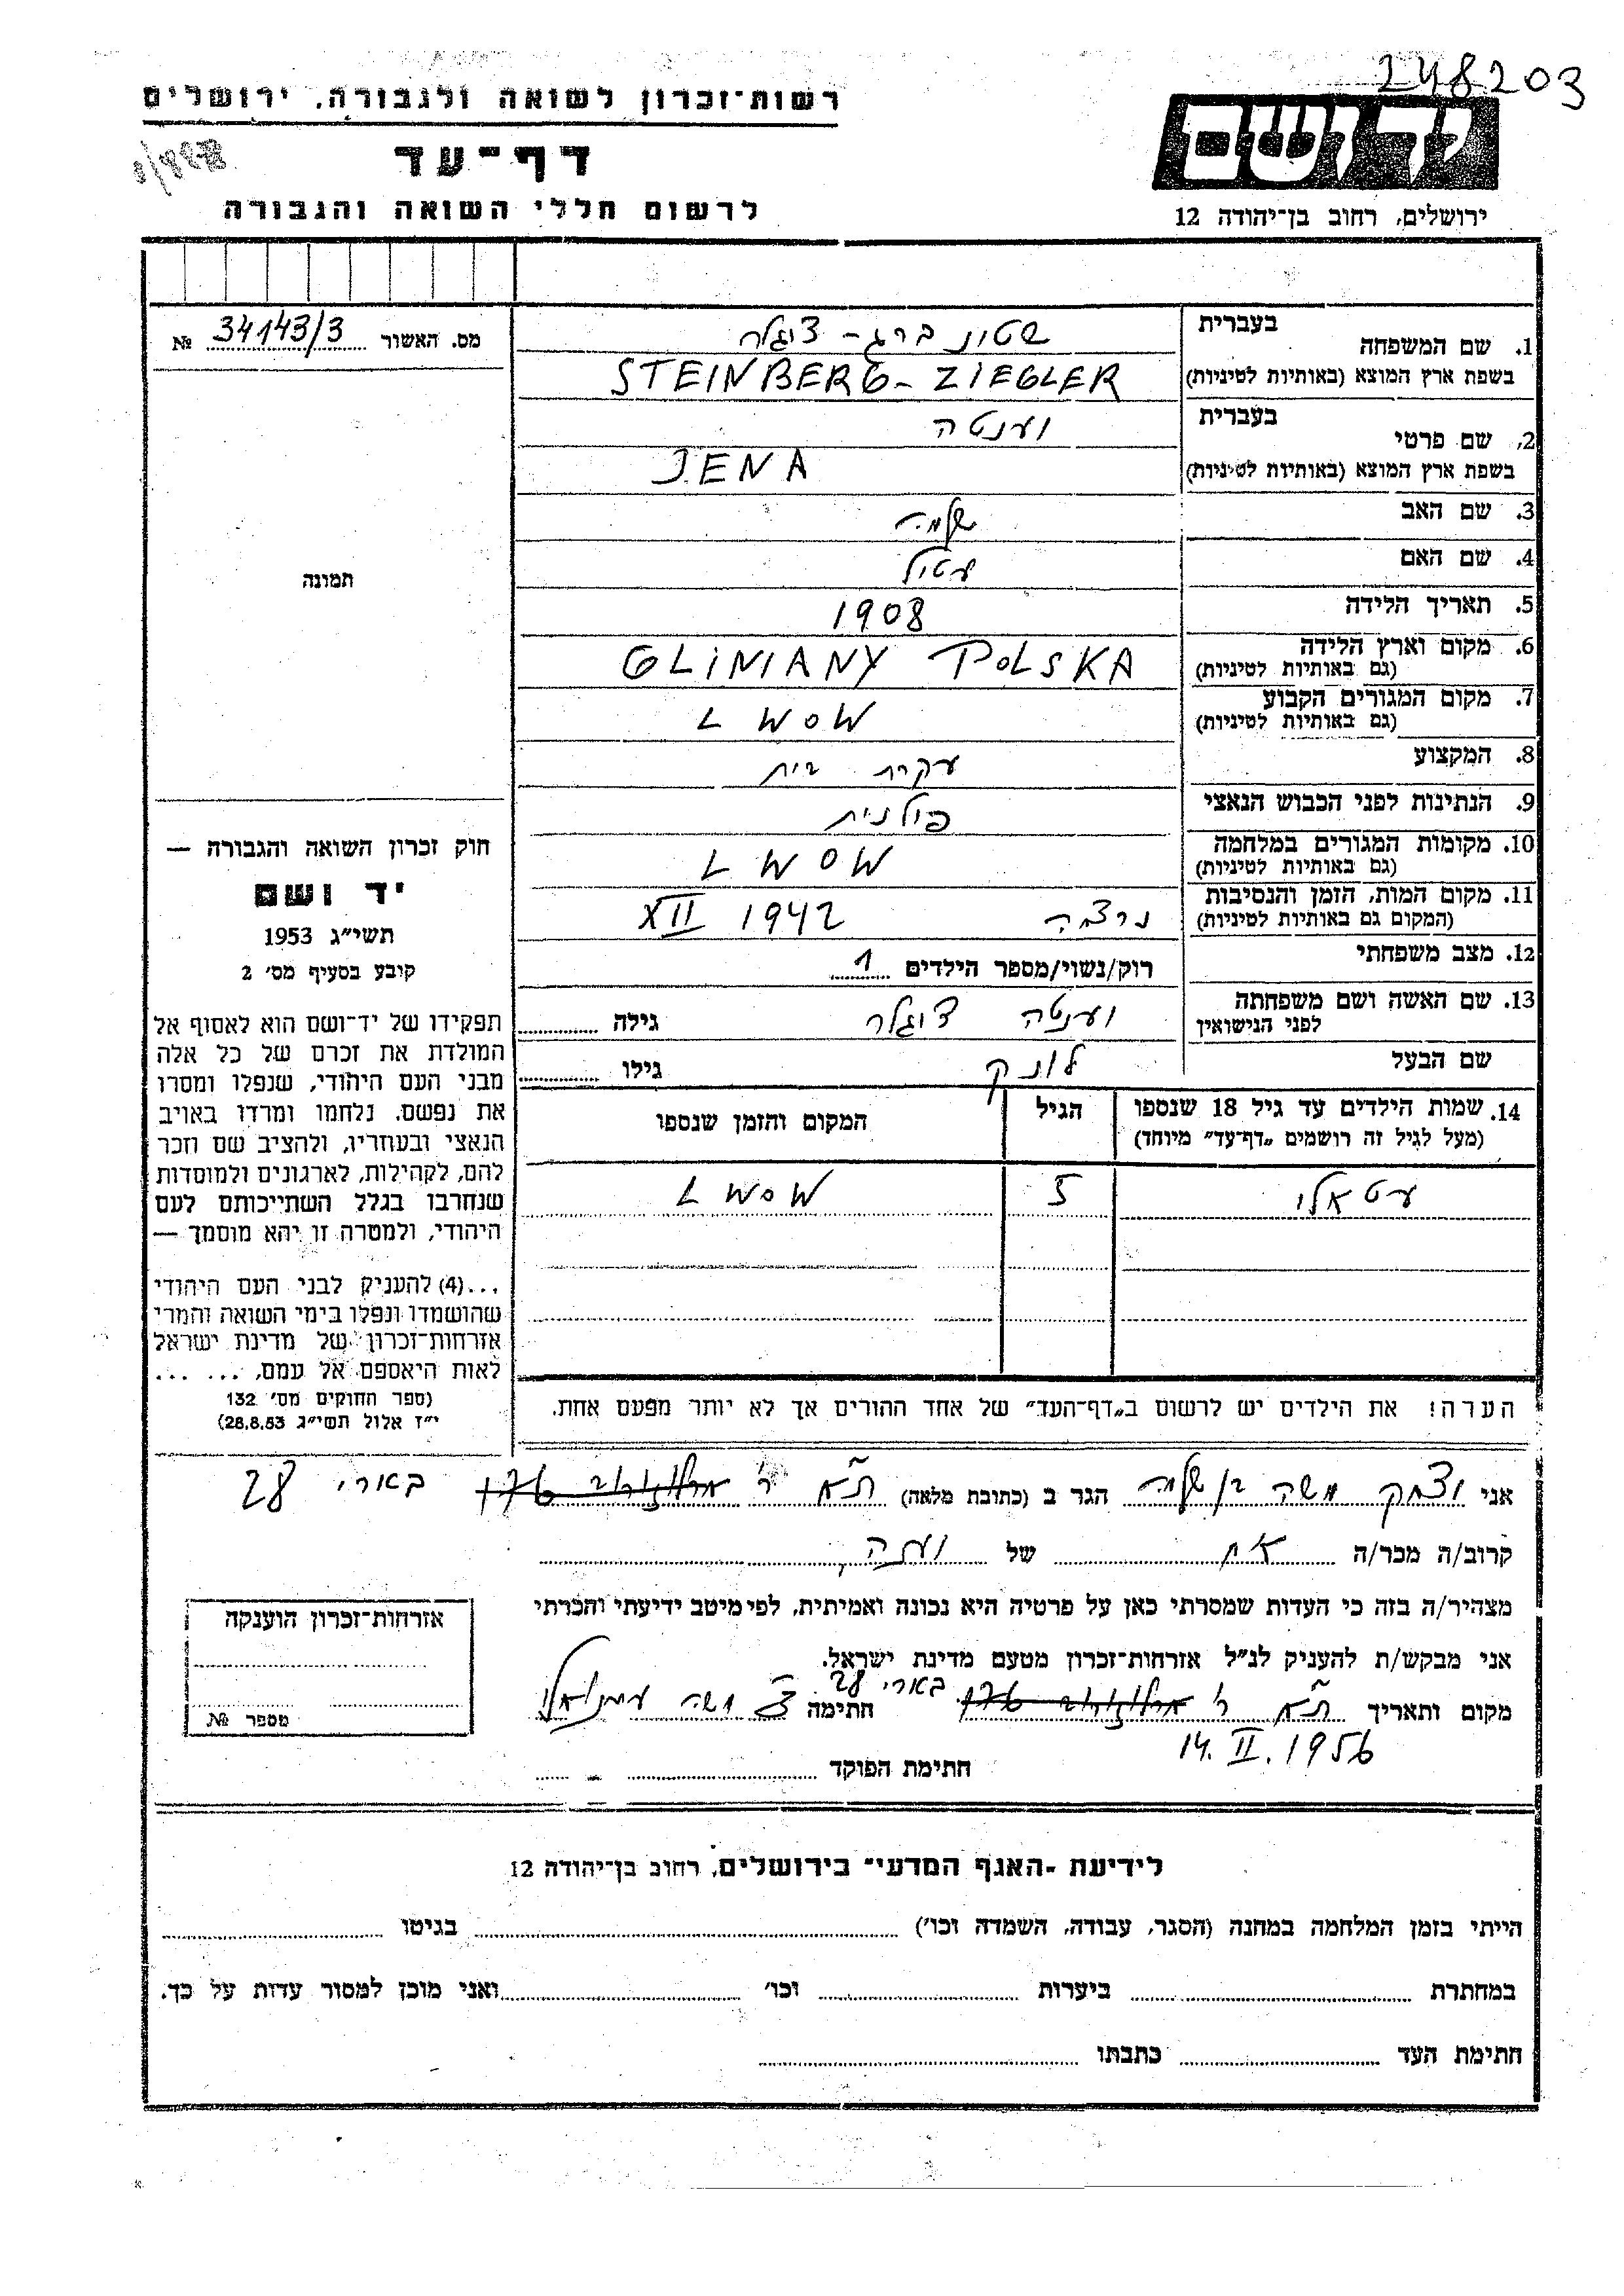 248203
רשות־זכרון לשואה ולגבורה, ירושלים
דף־עד
לרשום חללי השואה והגבורה
יד ושם
ירושלים, רחוב בן־יהודה 12
מס. האשור 34143/3 №
1. שם המשפחה
בעברית שטינברג - ציגלר
בשפת ארץ המוצא (באותיות לטיניות) STEINBERG - ZIEGLER
2. שם פרטי
בעברית יענטה
בשפת ארץ המוצא (באותיות לטיניות) JENA
3. שם האב שלמה
4. שם האם
5. תאריך הלידה 1908
6. מקום וארץ הלידה
(גם באותיות לטיניות) GLINIANY POLSKA
7. מקום המגורים הקבוע
(גם באותיות לטיניות) LWOW
8. המקצוע עקרת בית
9. הנתינות לפני הכבוש הנאצי פולנית
10. מקומות המגורים במלחמה
(גם באותיות לטיניות) LWOW
11. מקום המות, הזמן והנסיבות
(המקום גם באותיות לטיניות) נרצחה XII 1942
12. מצב משפחתי רוק/נשוי/מספר הילדים 1
13. שם האשה ושם משפחתה
לפני הנישואין יענטה ציגלר גילה
שם הבעל לונק גילו
14. שמות הילדים עד גיל 18 שנספו
(מעל לגיל זה רושמים „דף־עד” מיוחד)
הגיל
המקום והזמן שנספו
5 LWOW
הערה! את הילדים יש לרשום ב„דף־העד” של אחד ההורים אך לא יותר מפעם אחת.
תמונה
חוק זכרון השואה והגבורה —
יד ושם
תשי״ג 1953
קובע בסעיף מס׳ 2
תפקידו של יד־ושם הוא לאסוף אל
המולדת את זכרם של כל אלה
מבני העם היהודי, שנפלו ומסרו
את נפשם, נלחמו ומרדו באויב
הנאצי ובעוזריו, ולהציב שם וזכר
להם, לקהילות, לארגונים ולמוסדות
שנחרבו בגלל השתייכותם לעם
היהודי, ולמטרה זו יהא מוסמך —
...(4) להעניק לבני העם היהודי
שהושמדו ונפלו בימי השואה והמרי
אזרחות־זכרון של מדינת ישראל
לאות היאספם אל עמם, ... ...
(ספר החוקים מס׳ 132
י״ז אלול תשי״ג 28.8.53)
אני יצחק משה בן שלמה הגר ב (כתובת מלאה) ת״א ר׳ בארי 28
קרוב/ה מכר/ה אח של
מצהיר/ה בזה כי העדות שמסרתי כאן על פרטיה היא נכונה ואמיתית, לפי מיטב ידיעתי והכרתי
אני מבקש/ת להעניק לנ״ל אזרחות־זכרון מטעם מדינת ישראל.
בארי 28
מקום ותאריך ת״א ר׳ חתימה משה
14. II. 1956
חתימת הפוקד
אזרחות־זכרון הוענקה
מספר №
לידיעת ״האגף המדעי״ בירושלים, רחוב בן־יהודה 12
הייתי בזמן המלחמה במחנה (הסגר, עבודה, השמדה וכו׳) בגיטו
במחתרת ביערות וכו׳ ואני מוכן למסור עדות על כך.
חתימת העד כתבתו